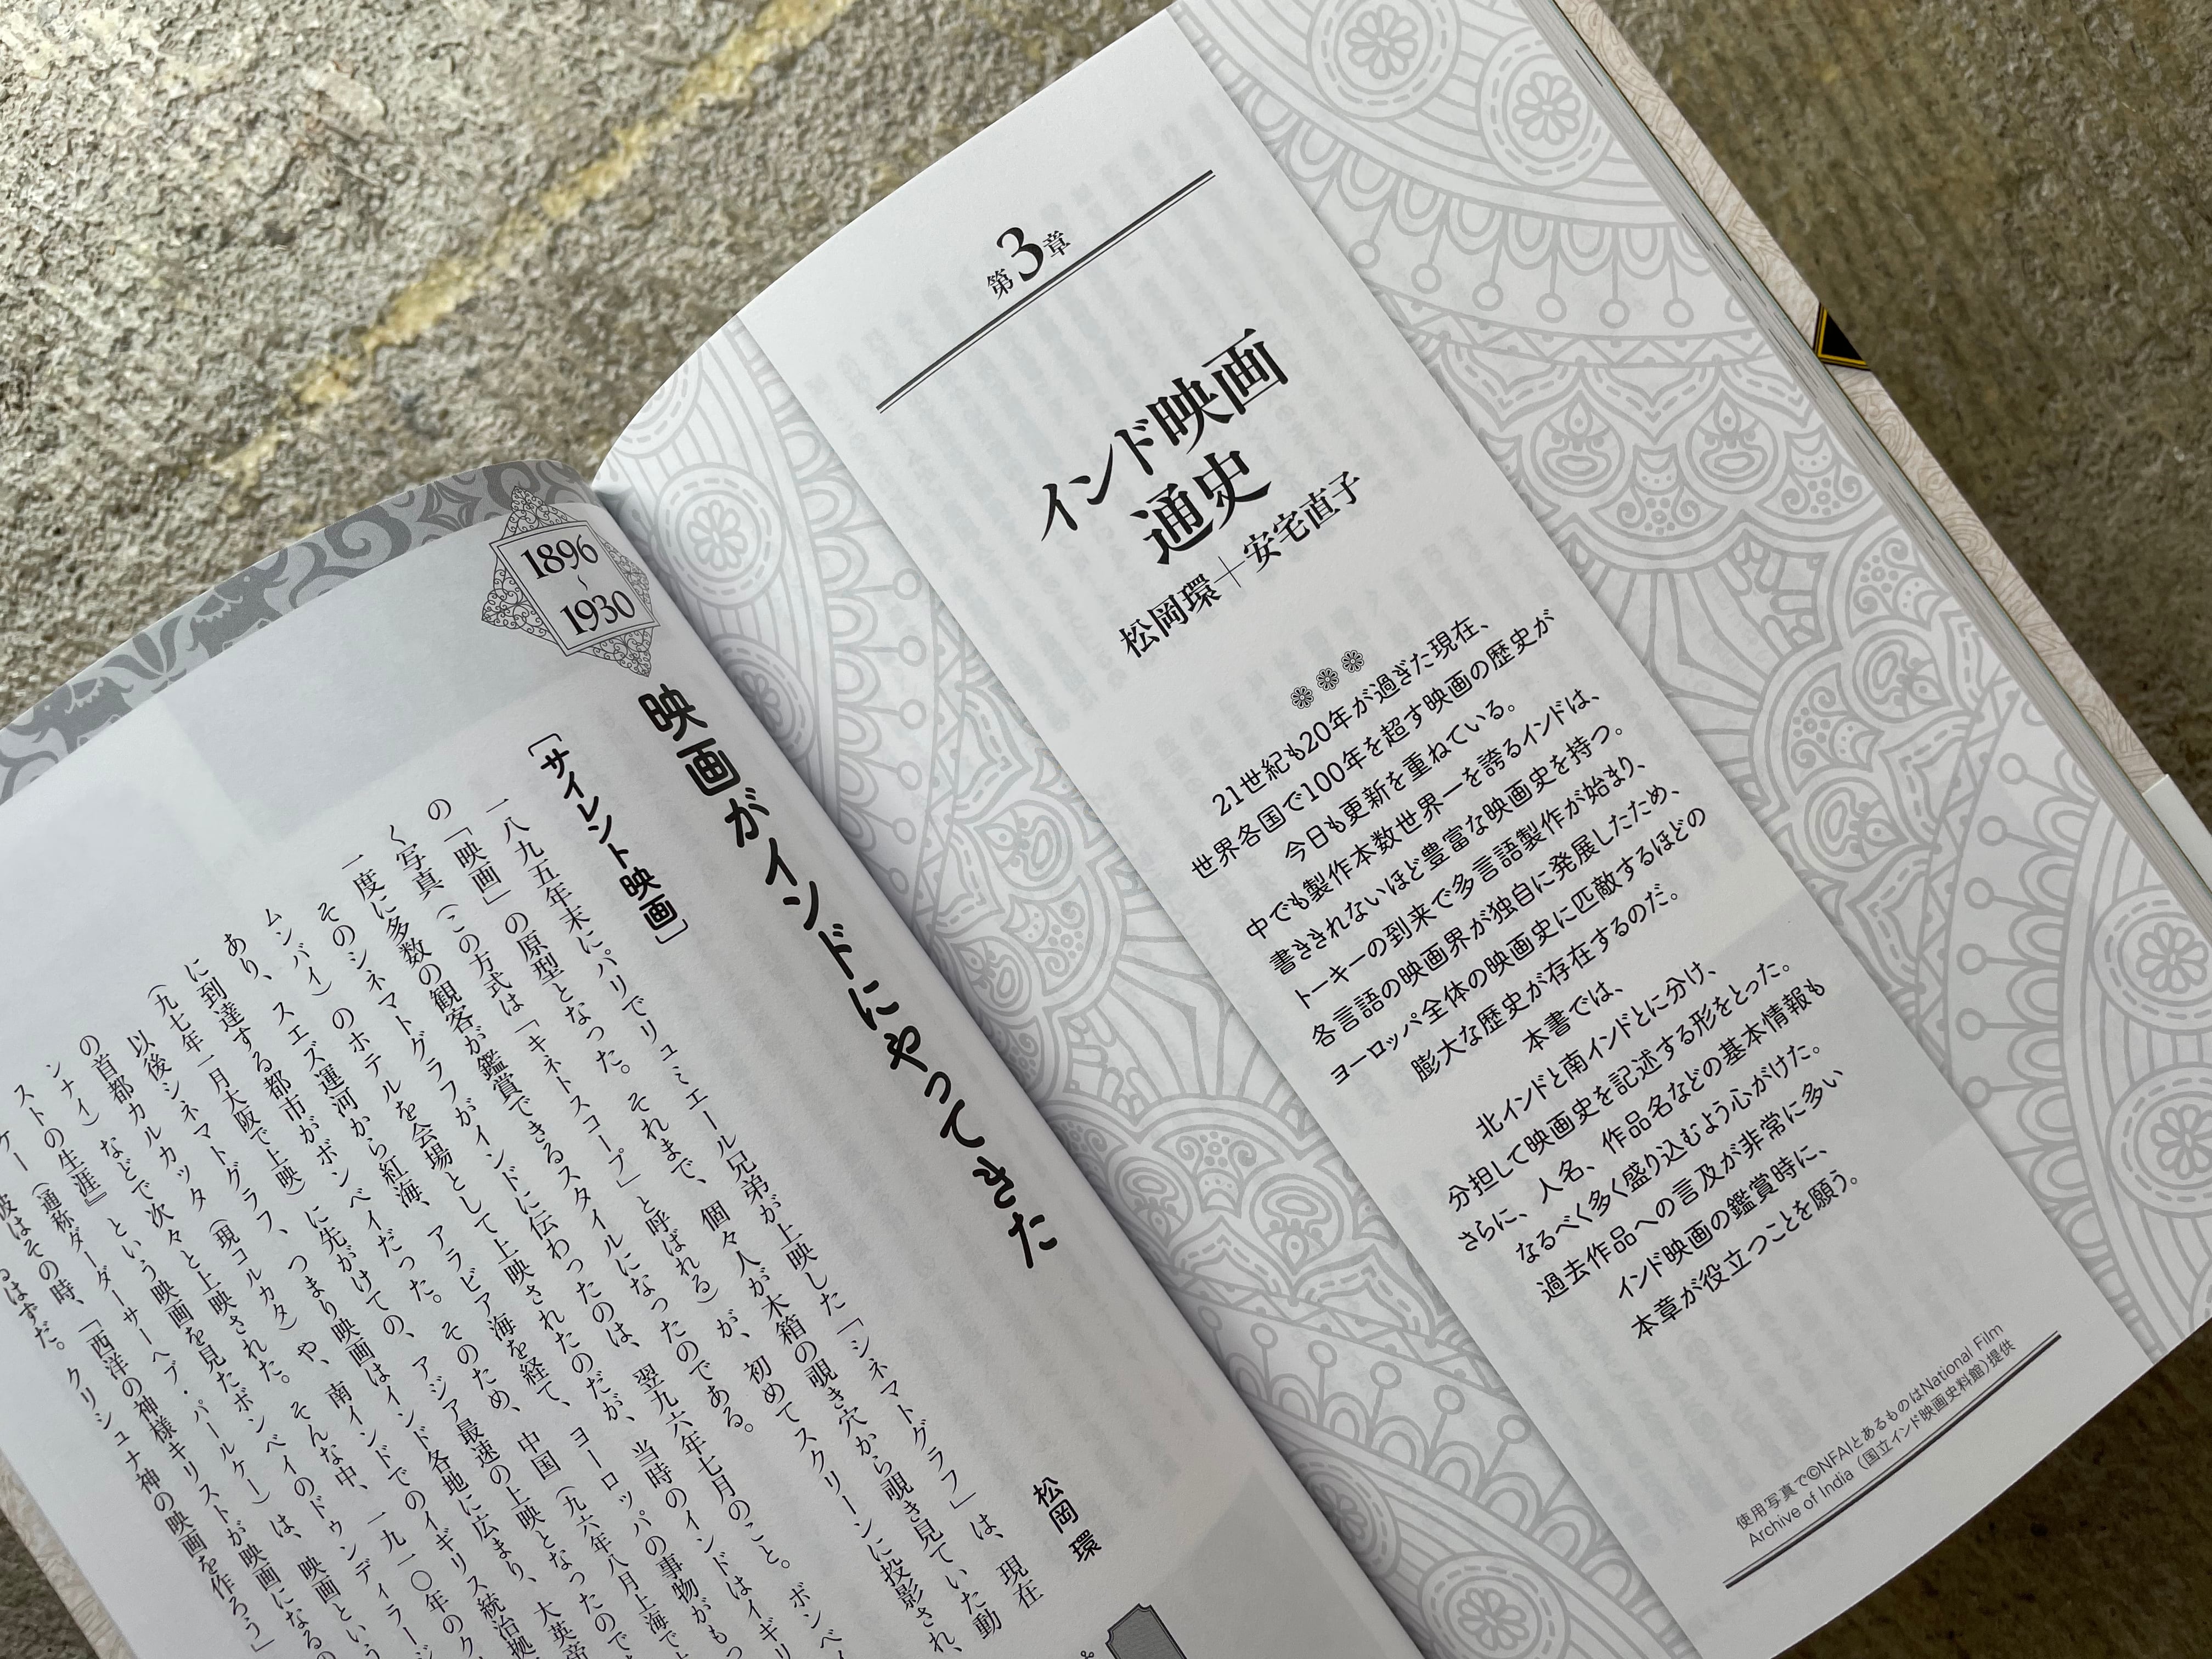 第3章
インド映画
通史
松岡環＋安宅直子
21世紀も20年が過ぎた現在、
世界各国で100年を超す映画の歴史が
今日も更新を重ねている。
中でも製作本数世界一を誇るインドは、
書ききれないほど豊富な映画史を持つ。
トーキーの到来で多言語製作が始まり、
各言語の映画界が独自に発展したため、
ヨーロッパ全体の映画史に匹敵するほどの
膨大な歴史が存在するのだ。
本書では、
北インドと南インドとに分け、
分担して映画史を記述する形をとった。
さらに、人名、作品名などの基本情報も
なるべく多く盛り込むよう心がけた。
過去作品への言及が非常に多い
インド映画の鑑賞時に、
本章が役立つことを願う。
使用写真で©NFAIとあるものはNational Film
Archive of India（国立インド映画史料館）提供
1896
〜
1930
映画がインドにやってきた
松岡 環
［サイレント映画］
一八九五年末にパリでリュミエール兄弟が上映した「シネマトグラフ」は、現在
の「映画」の原型となった。それまで、個々人が木箱の覗き穴から覗き見ていた動
く写真（この方式は「キネトスコープ」と呼ばれる）が、初めてスクリーンに投影され、
一度に多数の観客が鑑賞できるスタイルになったのである。
そのシネマトグラフがインドに伝わったのは、翌九六年七月のこと。ボンベイ
ムンバイ）のホテルを会場として上映されたのだが、当時のインドはイギリ
あり、スエズ運河から紅海、アラビア海を経て、ヨーロッパの事物がもっ
に到達する都市がボンベイだった。そのため、中国（九六年八月上海で上
（九七年一月大阪で上映）に先がけての、アジア最速の上映となったので
以後シネマトグラフ、つまり映画はインド各地に広まり、大英帝
の首都カルカッタ（現コルカタ）や、南インドでのイギリス統治拠
ンナイ）などで次々と上映された。そんな中、一九一〇年のク
ストの生涯』という映画を見たボンベイのドゥンディラージ
ケー（通称ダーダーサーヘブ・パールケー）は、映画という
彼はその時、「西洋の神様キリストが映画になるの
るはずだ。クリシュナ神の映画を作ろう」